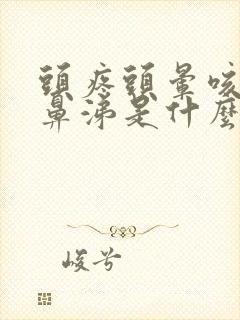 頭疼頭暈咳
鼻涕是什麼
峻兮